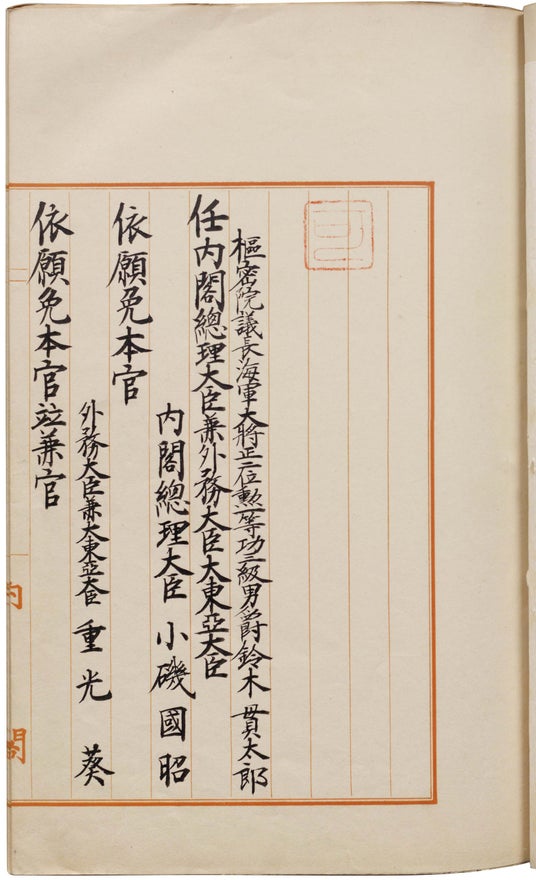 可
樞密院議長海軍大將正二位勲一等功三級男爵鈴木貫太郎
任内閣總理大臣兼外務大臣大東亞大臣
内閣總理大臣小磯國昭
依願免本官
外務大臣兼大東亞大臣重光葵
依願免本官竝兼官
内閣